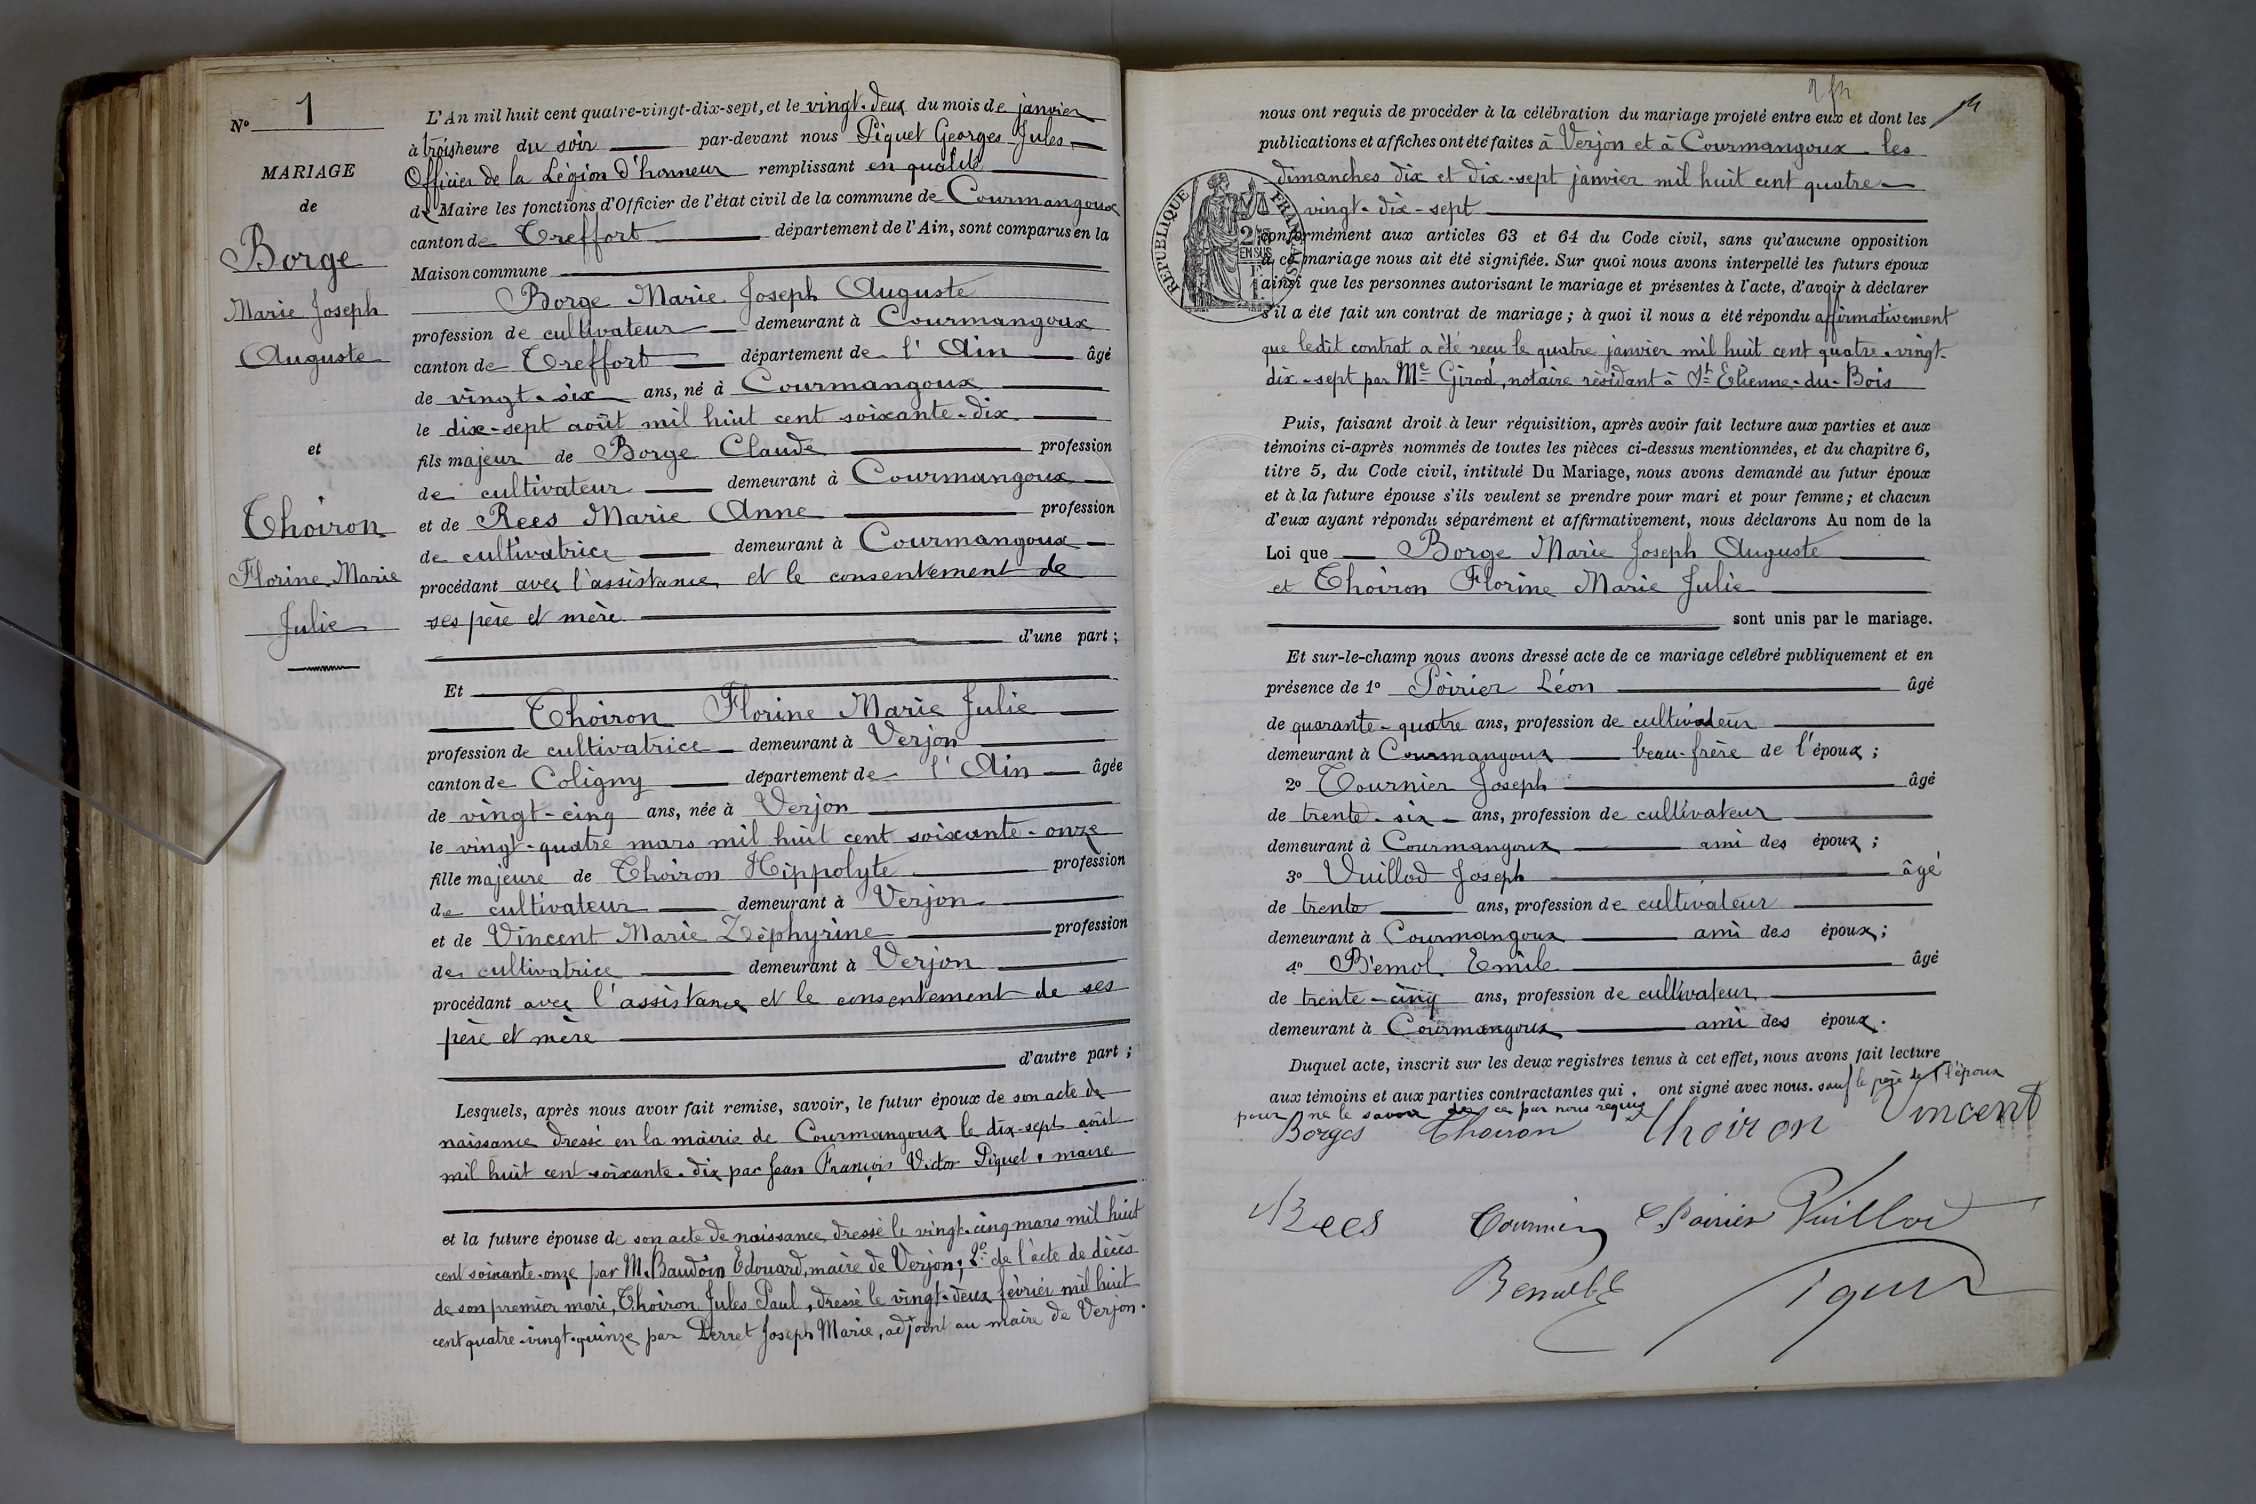 N° 1
MARIAGE
de
Borge
Marie Joseph
Auguste
et
Thoiron
Florine Marie
Julie
L'An mil huit cent quatre-vingt-dix-sept, et le vingt-deux du mois de janvier
à trois heure du soir par-devant nous Piquet Georges Jules
Officier de la Légion d'honneur remplissant en qualité
de Maire les fonctions d'Officier de l'état civil de la commune de Courmangoux
canton de Treffort département de l'Ain, sont comparus en la
Maison commune
Borge Marie Joseph Auguste
profession de cultivateur demeurant à Courmangoux
canton de Treffort département de l'Ain âgé
de vingt-six ans, né à Courmangoux
le dix-sept août mil huit cent soixante-dix
fils majeur de Borge Claude profession
de cultivateur demeurant à Courmangoux
et de Rees Marie Anne profession
de cultivatrice demeurant à Courmangoux
procédant avec l'assistance et le consentement de
ses père et mère
d'une part ;
Et
Thoiron Florine Marie Julie
profession de cultivatrice demeurant à Verjon
canton de Coligny département de l'Ain âgée
de vingt-cinq ans, née à Verjon
le vingt-quatre mars mil huit cent soixante-onze
fille majeure de Thoiron Hippolyte profession
de cultivateur demeurant à Verjon
et de Vincent Marie Zéphyrine profession
de cultivatrice demeurant à Verjon
procédant avec l'assistance et le consentement de ses
père et mère
d'autre part ;
Lesquels, après nous avoir fait remise, savoir, le futur époux de son acte de
naissance dressé en la mairie de Courmangoux le dix-sept août
mil huit cent soixante-dix par Jean François Victor Piquet, maire
et la future épouse de son acte de naissance dressé le vingt-cinq mars mil huit
cent soixante-onze par M. Baudoin Edouard, maire de Verjon; 2° de l'acte de décès
de son premier mari, Thoiron Jules Paul, dressé le vingt-deux février mil huit
cent quatre-vingt-quinze par Derret Joseph Marie, adjoint au maire de Verjon.
nous ont requis de procéder à la célébration du mariage projeté entre eux et dont les
publications et affiches ont été faites à Verjon et à Courmangoux les
dimanches dix et dix-sept janvier mil huit cent quatre-
vingt-dix-sept
REPUBLIQUE FRANÇAISE
EN SUS
conformément aux articles 63 et 64 du Code civil, sans qu'aucune opposition
à ce mariage nous ait été signifiée. Sur quoi nous avons interpellé les futurs époux
ainsi que les personnes autorisant le mariage et présentes à l'acte, d'avoir à déclarer
s'il a été fait un contrat de mariage ; à quoi il nous a été répondu affirmativement
que ledit contrat a été reçu le quatre janvier mil huit cent quatre-vingt-
dix-sept par Me Girod, notaire résidant à St Etienne-du-Bois
Puis, faisant droit à leur réquisition, après avoir fait lecture aux parties et aux
témoins ci-après nommés de toutes les pièces ci-dessus mentionnées, et du chapitre 6,
titre 5, du Code civil, intitulé Du Mariage, nous avons demandé au futur époux
et à la future épouse s'ils veulent se prendre pour mari et pour femme ; et chacun
d'eux ayant répondu séparément et affirmativement, nous déclarons Au nom de la
Loi que Borge Marie Joseph Auguste
et Thoiron Florine Marie Julie
sont unis par le mariage.
Et sur-le-champ nous avons dressé acte de ce mariage célébré publiquement et en
présence de 1° Poirier Léon âgé
de quarante-quatre ans, profession de cultivateur
demeurant à Courmangoux beau-frère de l'époux ;
2° Tournier Joseph âgé
de trente-six ans, profession de cultivateur
demeurant à Courmangoux ami des époux ;
3° Vuillod Joseph âgé
de trente ans, profession de cultivateur
demeurant à Courmangoux ami des époux ;
4° Bémol Emile âgé
de trente-cinq ans, profession de cultivateur
demeurant à Courmangoux ami des époux.
Duquel acte, inscrit sur les deux registres tenus à cet effet, nous avons fait lecture
aux témoins et aux parties contractantes qui ont signé avec nous. sauf le père de l'époux
pour ne le savoir de ce par nous requis
Borges Thoiron Thoiron Vincent
Rees Tournier Poirier Vuillod